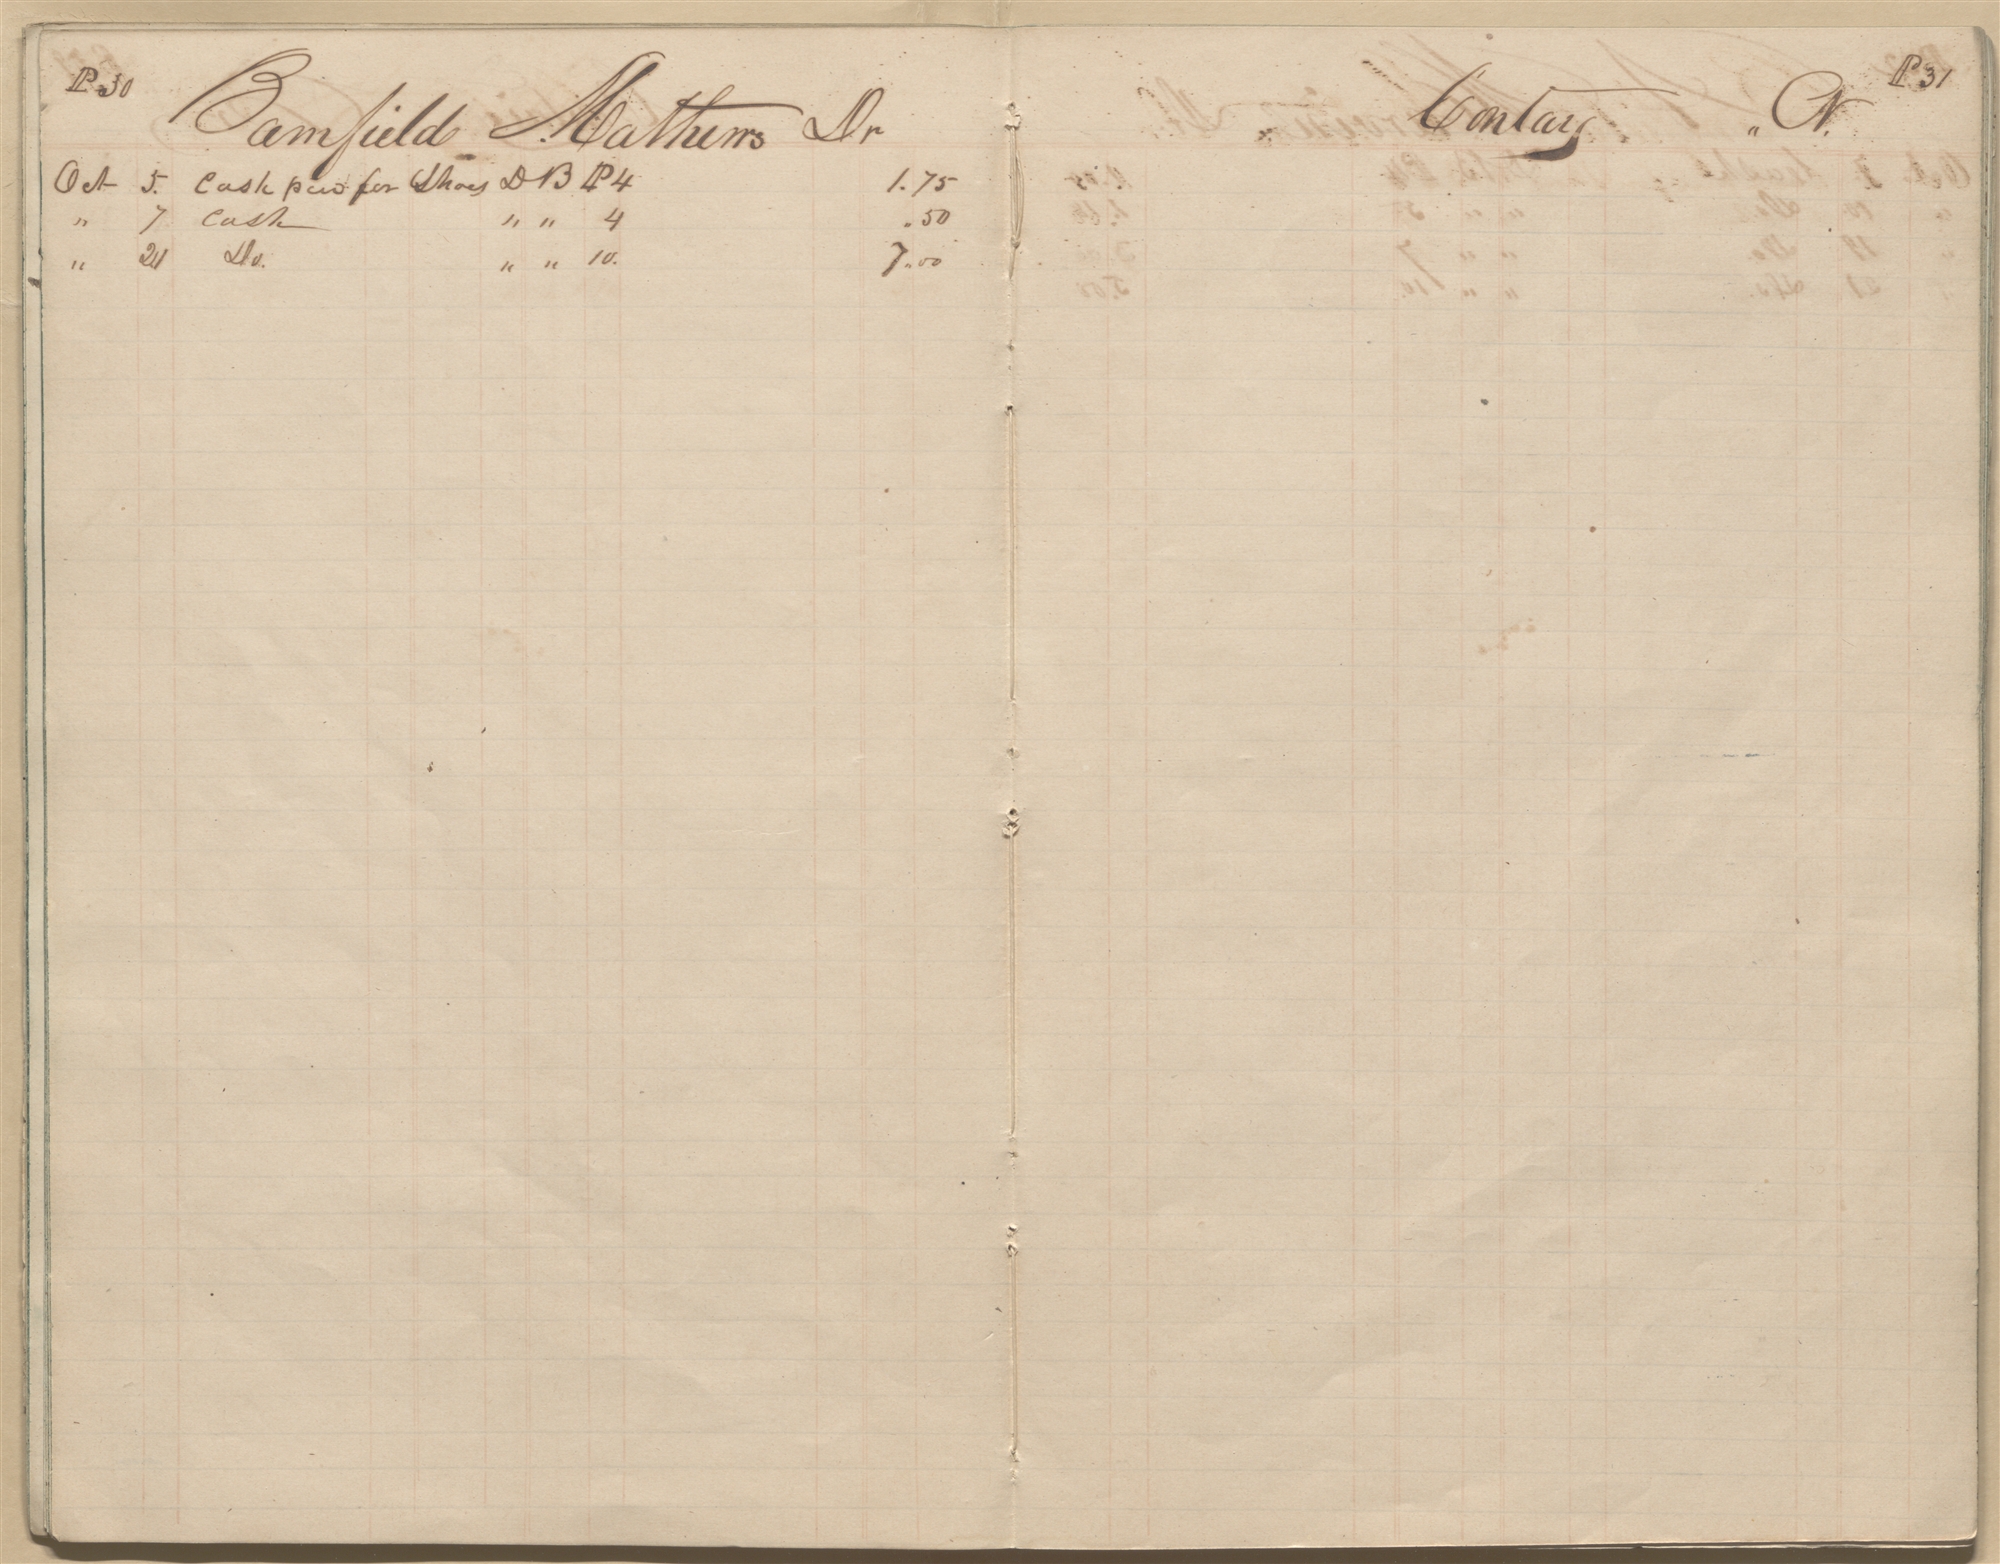 P. 30
Bamfield Mathews Dr
Oct 5. Cash paid for Shoes D B P 4 1.75
" 7 Cash " " 4 .50
" 21 Do. " " 10. 7.00
P 31
Contary " Cr.